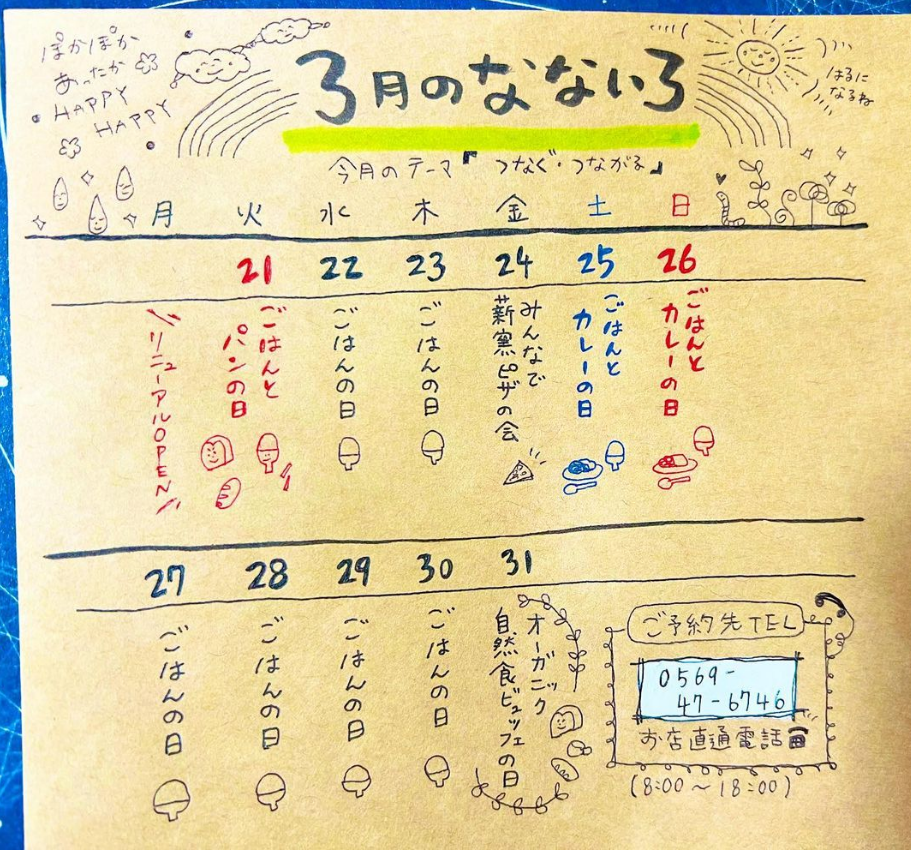 ぽかぽか
あったか
HAPPY
HAPPY
3月のなないろ
はるに
なるね
今月のテーマ『つなぐ・つながる』
月 火 水 木 金 土 日
21 22 23 24 25 26
リニューアルOPEN
ごはんと
パンの日
ごはんの日
ごはんの日
みんなで
薪窯ピザの会
ごはんと
カレーの日
ごはんと
カレーの日
27 28 29 30 31
ごはんの日
ごはんの日
ごはんの日
ごはんの日
オーガニック
自然食ビュッフェの日
ご予約先TEL
0569-
47-6746
お店直通電話
(8:00～18:00)